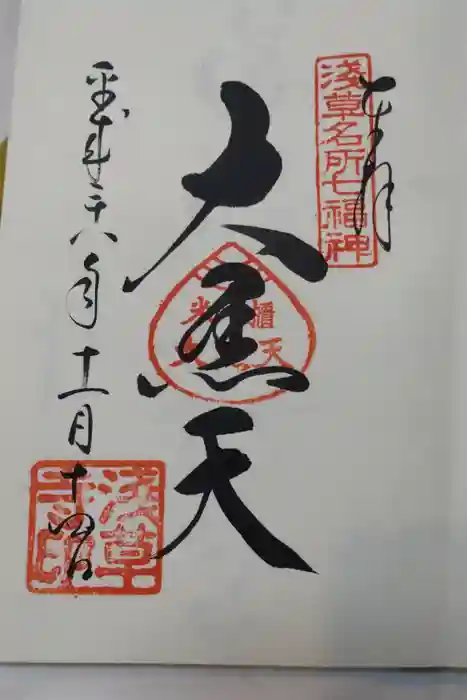 奉拝
淺草名所七福神
大黒天
平成二十八年十一月十四日
淺草
寺印